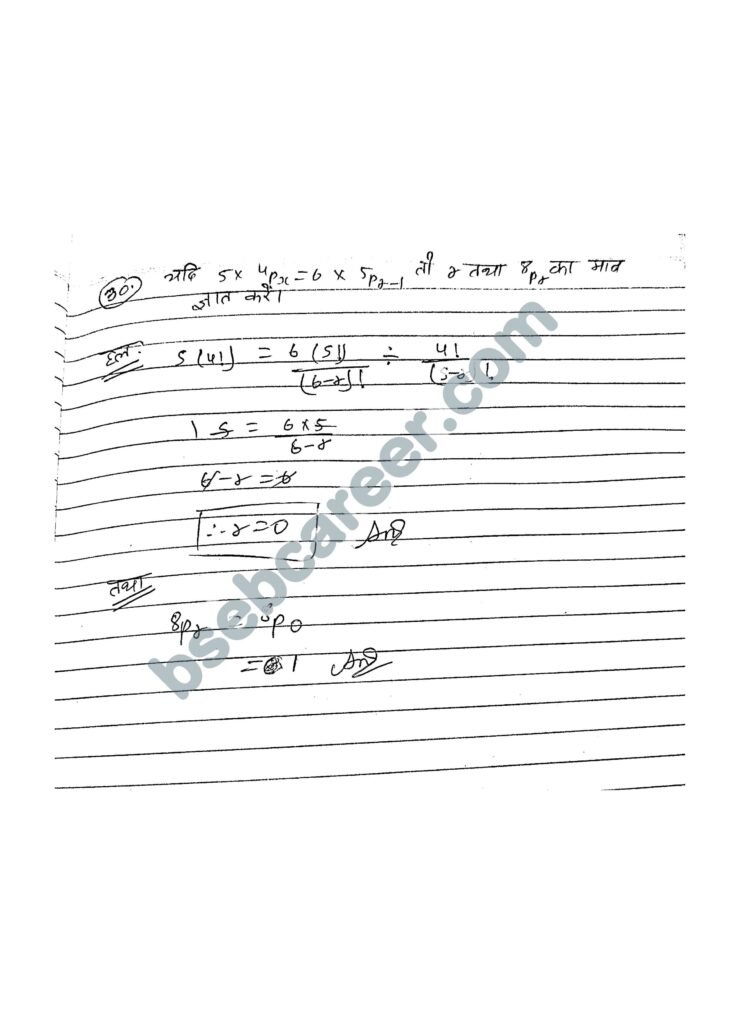 30. यदि 5× ⁴Pr = 6 × 5Pr-1 तो r तथा 8Pr का मान
ज्ञात करें।
हल:- 5(4!) = 6(5!)/(6-r)! ÷ 4!/(5-r)!
1 5 = 6×5/6-r
6-r = 6
∴ r = 0 Ans
तथा
8Pr = ⁸P0
= 1 Ans
bsebcareer.com